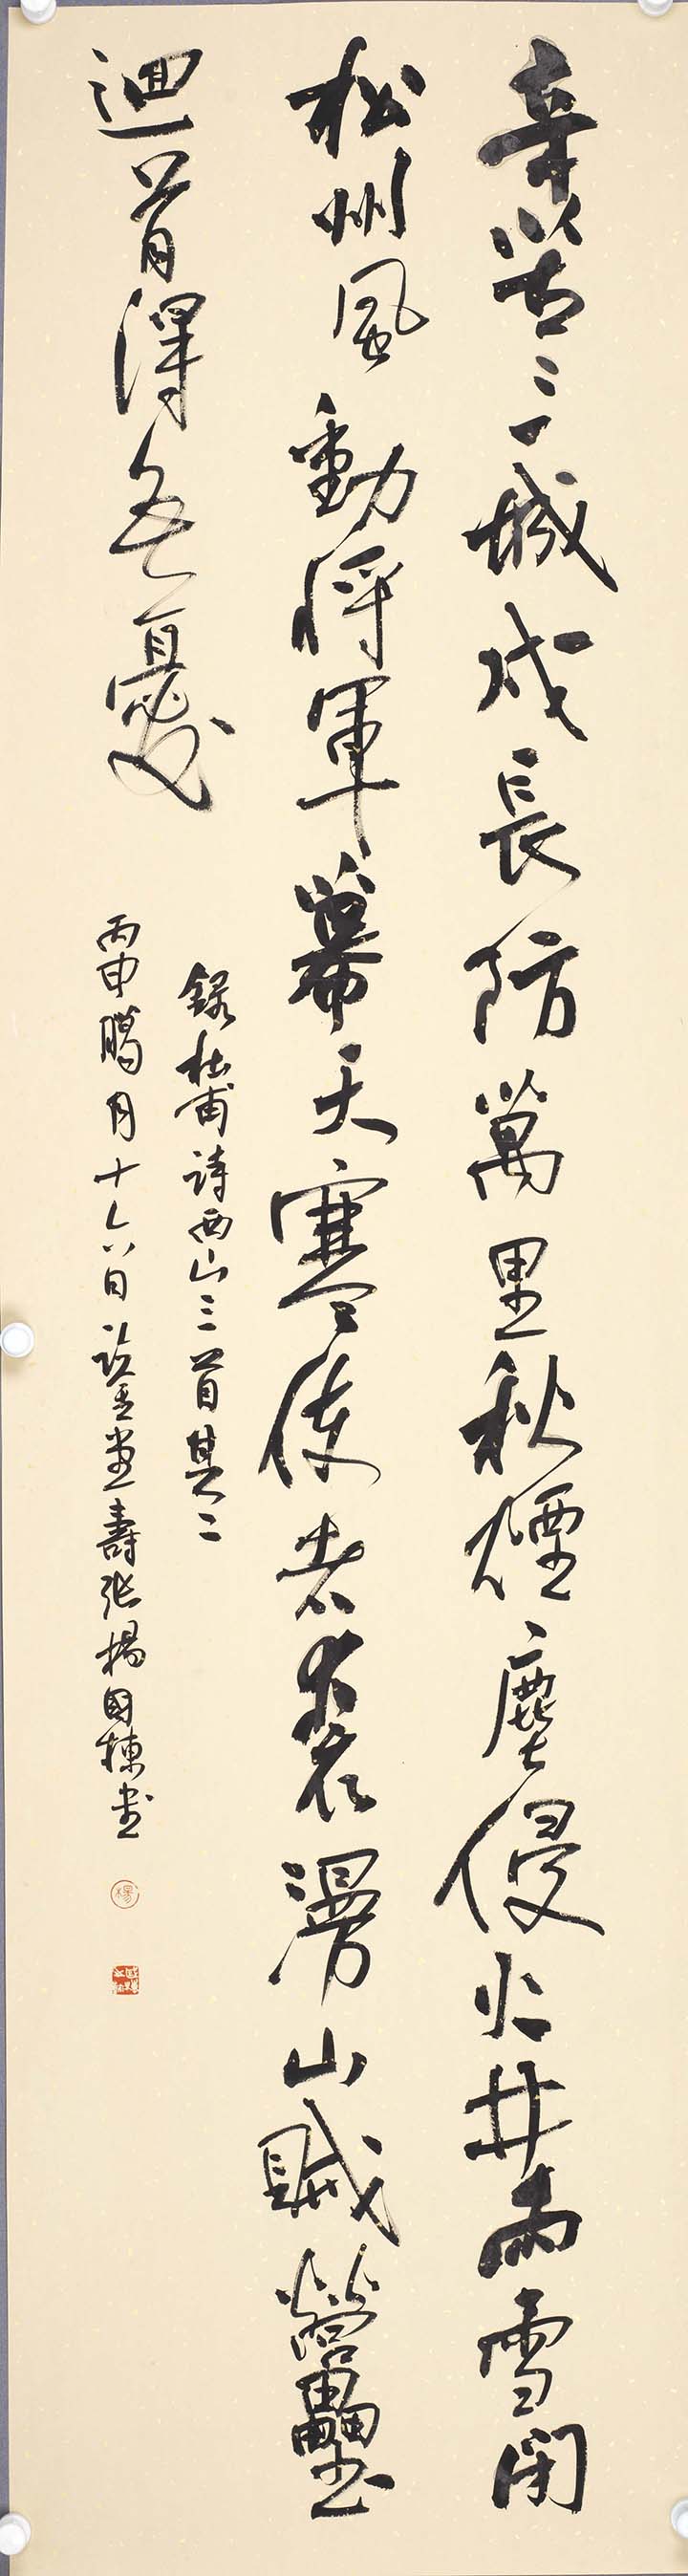 辛苦三城戍長防萬里秋煙塵侵火井雨雪閉
松州風動將軍幕天寒使者裘漫山賊營壘
迴首得無憂
錄杜甫詩西山三首其二
丙申臘月十六日壽張楊國棟書
楊